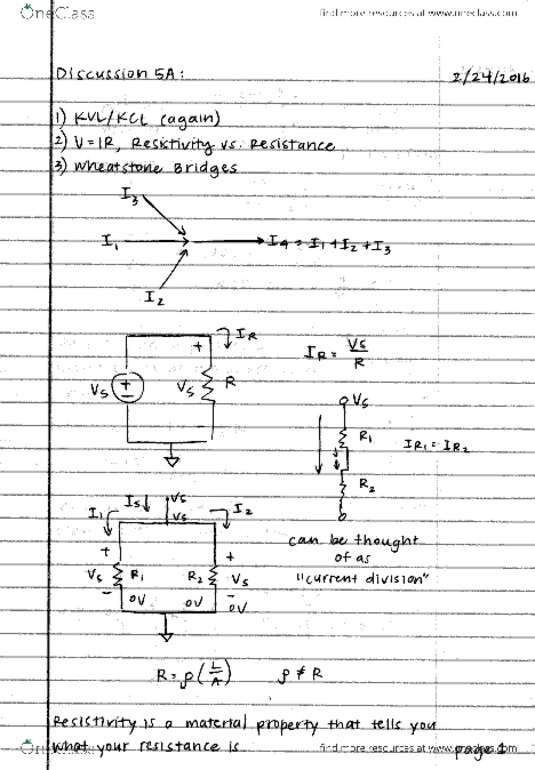 OneClass
find more resources at www.oneclass.com
Discussion 5A:
2/24/2016
1) KVL/KCL (again)
2) V=IR, Resistivity vs. Resistance
3) Wheatstone Bridges
I3
I1
I4 = I1 + I2 + I3
I2
IR
+
Vs
+
Vs
R
IR = Vs/R
Vs
R1
IR1 = IR2
R2
Is
Vs
Vs
I1
I2
+
+
Vs
R1
R2
Vs
-
0V
0V
-
0V
can be thought
of as
"current division"
R = ρ(L/A)
ρ ≠ R
Resistivity is a material property that tells you
what your resistance is
find more resources at www.
page 1